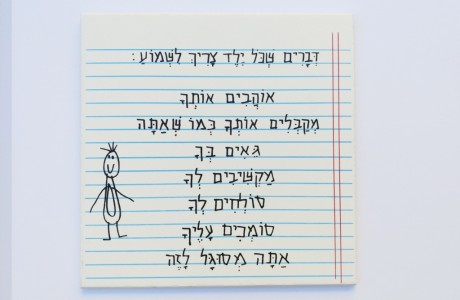 דְּבָרִים שֶׁכֹּל יֶלֶד צָרִיךְ לִשְׁמוֹעַ:
אוֹהֲבִים אוֹתְךָ
מְקַבְּלִים אוֹתְךָ כְּמוֹ שֶׁאַתָּה
גֵּאִים בְּךָ
מַקְשִׁיבִים לְךָ
סוֹלְחִים לְךָ
סוֹמְכִים עָלֶיךָ
אַתָּה מְסוּגָל לָזֶה